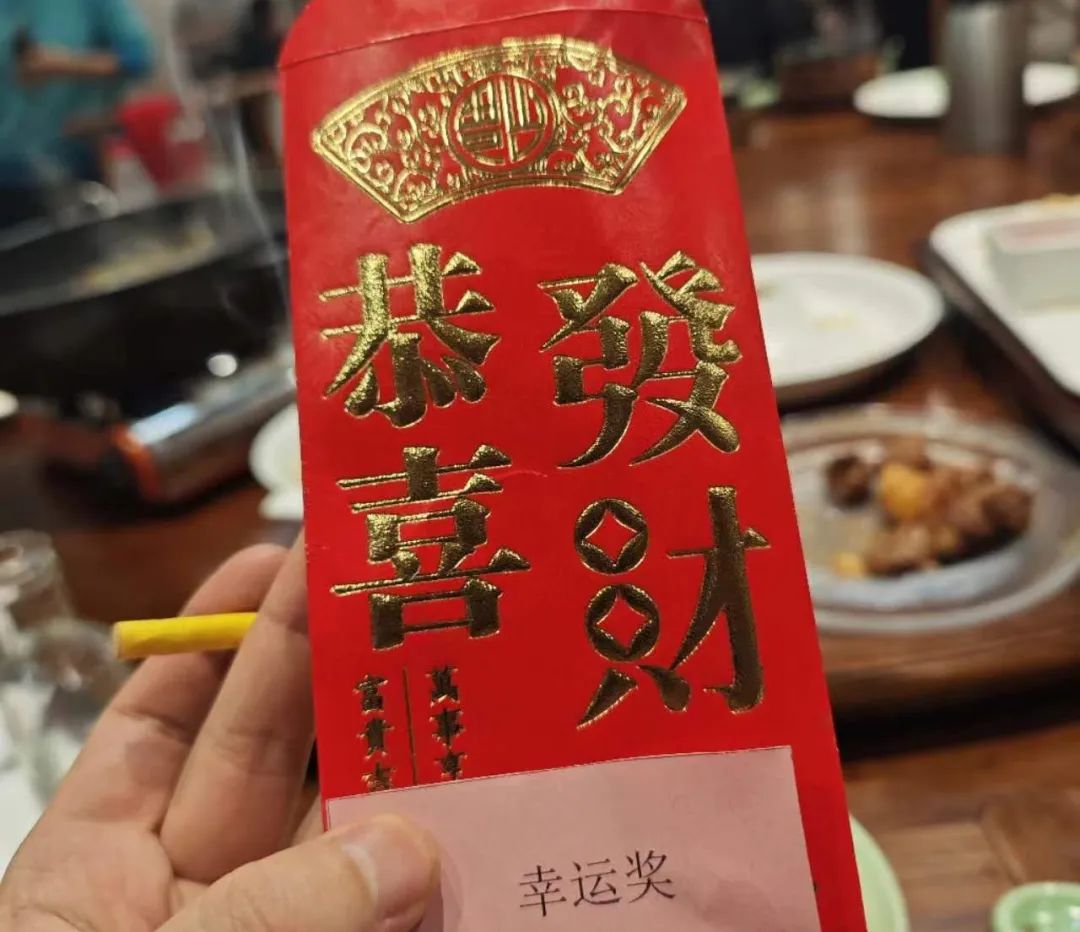 恭喜
發財
富貴吉
萬事亨
幸运奖